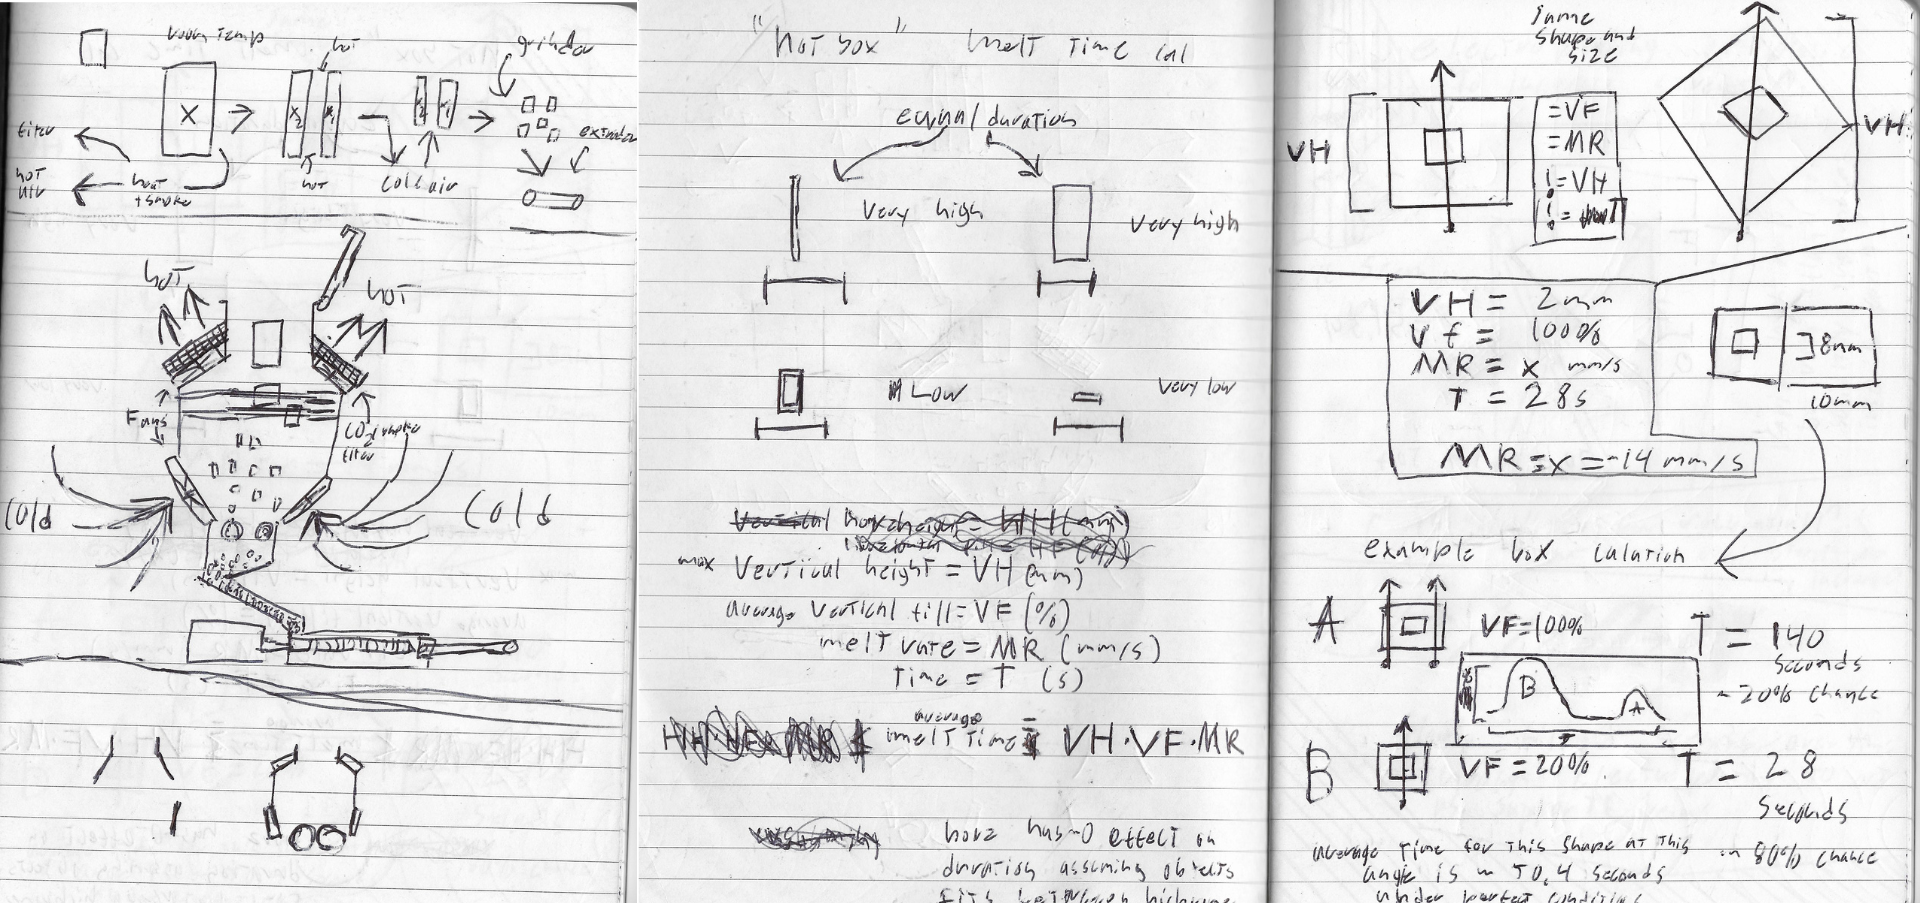 room temp
hot
grinder
X
X2
X1
X2
X1
filter
extruder
hot
air
heat
+ smoke
hot
cold air
hot
hot
Fans
CO2/smoke
filter
cold
cold
"hot box" melt time cal
equal duration
very high
very high
Low
very low
max vertical height = VH (mm)
average vertical fill = VF (%)
melt rate = MR (mm/s)
time = T (s)
average
melt time = VH·VF·MR
horz has 0 effect on
duration assuming objects
fits between
Same
shape and
size
VH
=VF
=MR
!=VH
!=T
VH
VH = 2mm
Vf = 100%
MR = x mm/s
T = 28s
MR = x = ~14 mm/s
8mm
10mm
example box calulation
A
VF=100%
T = 140
seconds
~ 20% chance
B
A
B
VF = 20%
T = 28
seconds
~ 80% chance
average time for this shape at this
angle is ~ 50,4 seconds
under perfect conditions